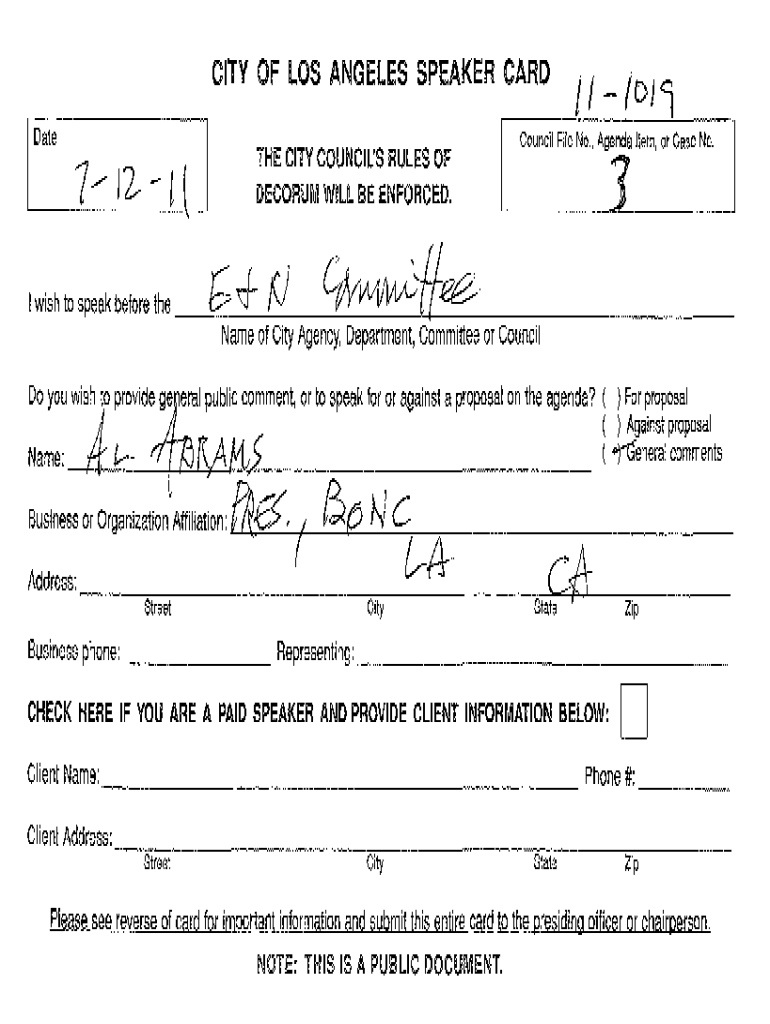 CITY OF LOS ANGELES SPEAKER CARD
11-1019
Date
Council File No., Agenda Item, or Case No.
7-12-11
THE CITY COUNCIL'S RULES OF
DECORUM WILL BE ENFORCED.
3
I wish to speak before the E+N Committee
Name of City Agency, Department, Committee or Council
Do you wish to provide general public comment, or to speak for or against a proposal on the agenda? ( ) For proposal
( ) Against proposal
( ) General comments
Name: AL ABRAMS
Business or Organization Affiliation: PRES., BONC
Address: LA CA
Street City State Zip
Business phone: Representing:
CHECK HERE IF YOU ARE A PAID SPEAKER AND PROVIDE CLIENT INFORMATION BELOW:
Client Name: Phone #:
Client Address:
Street City State Zip
Please see reverse of card for important information and submit this entire card to the presiding officer or chairperson.
NOTE: THIS IS A PUBLIC DOCUMENT.